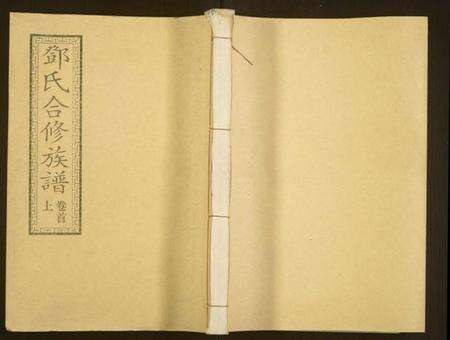 鄧氏合修族譜
卷首
上